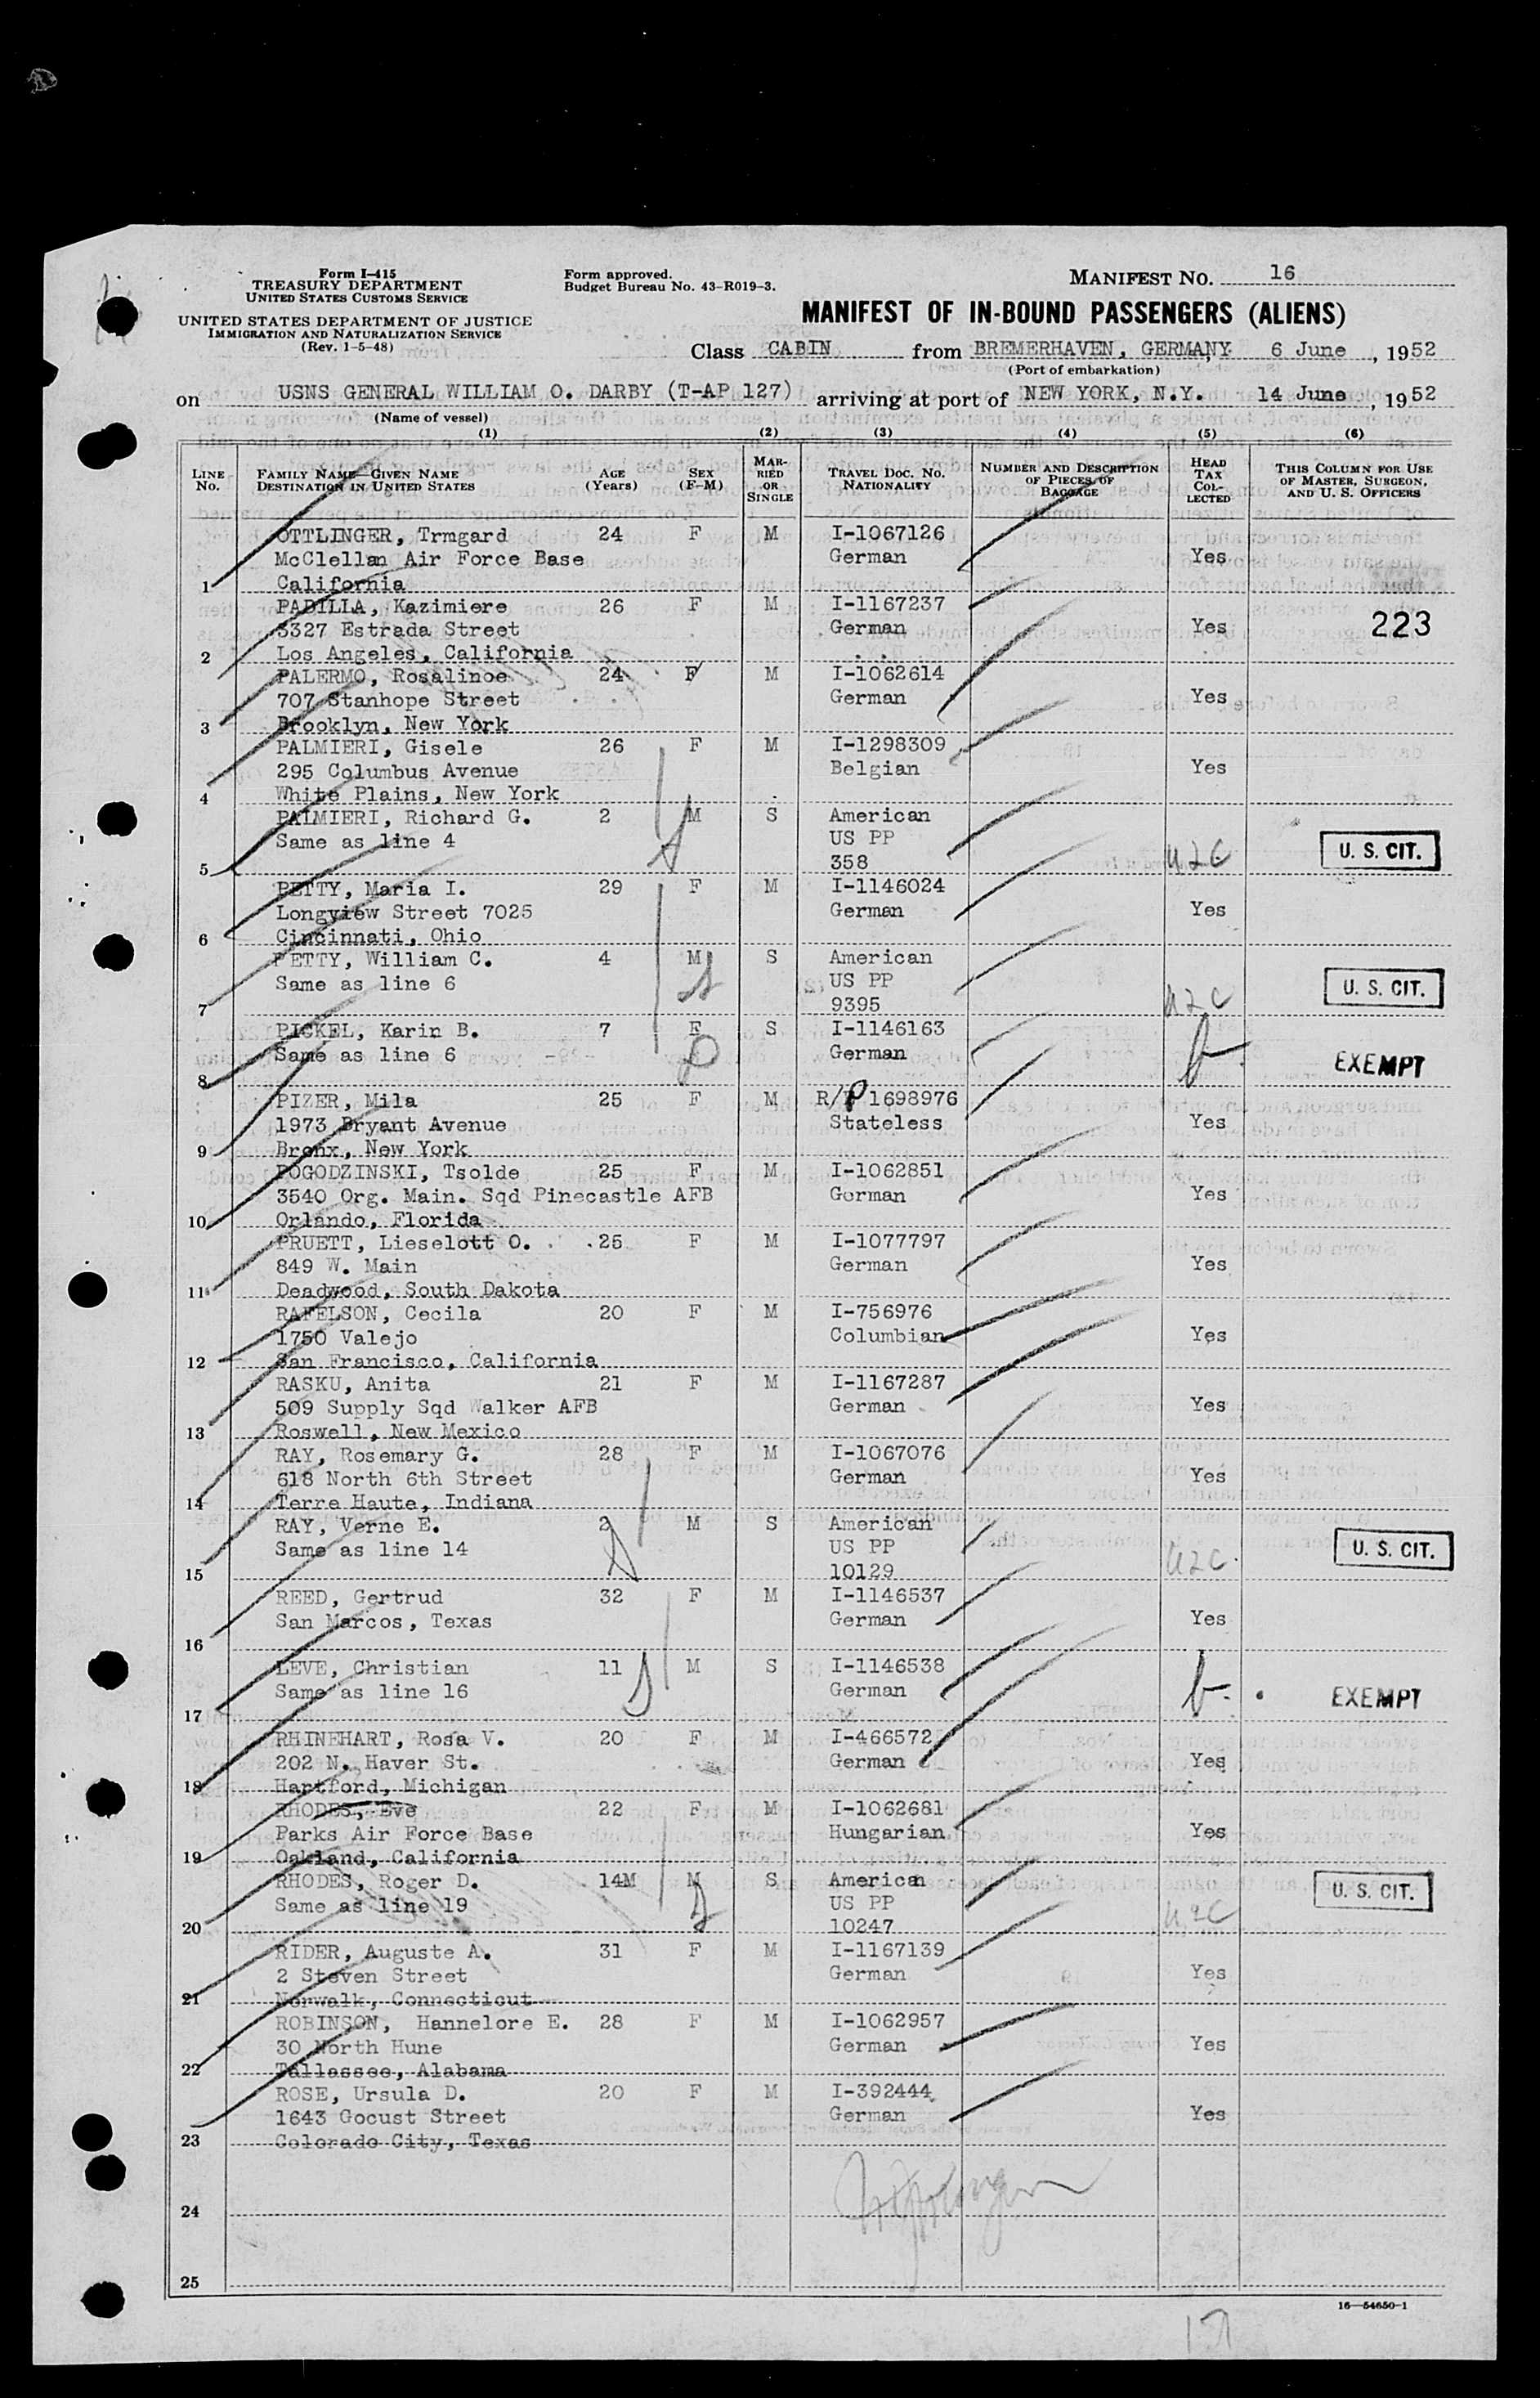 Form I-415
TREASURY DEPARTMENT
UNITED STATES CUSTOMS SERVICE
UNITED STATES DEPARTMENT OF JUSTICE
IMMIGRATION AND NATURALIZATION SERVICE
(Rev. 1-5-48)
Form approved.
Budget Bureau No. 43-R019-3.
MANIFEST NO. 16
MANIFEST OF IN-BOUND PASSENGERS (ALIENS)
Class CABIN from BREMERHAVEN, GERMANY 6 June, 1952
(Port of embarkation)
on USNS GENERAL WILLIAM O. DARBY (T-AP 127) arriving at port of NEW YORK, N.Y. 14 June, 1952
(Name of vessel)
(1) (2) (3) (4) (5) (6)
LINE No. FAMILY NAME—GIVEN NAME DESTINATION IN UNITED STATES AGE (Years) SEX (F-M) MARRIED OR SINGLE TRAVEL DOC. NO. NATIONALITY NUMBER AND DESCRIPTION OF PIECES OF BAGGAGE HEAD TAX COLLECTED THIS COLUMN FOR USE OF MASTER, SURGEON, AND U. S. OFFICERS
OTTLINGER, Trmgard 24 F M I-1067126
McClellan Air Force Base German Yes
1 California
PADILLA, Kazimiere 26 F M I-1167237
3327 Estrada Street German Yes 223
2 Los Angeles, California
PALERMO, Rosalinoe 24 F M I-1062614
707 Stanhope Street German Yes
3 Brooklyn, New York
PALMIERI, Gisele 26 F M I-1298309
295 Columbus Avenue Belgian Yes
4 White Plains, New York
PALMIERI, Richard G. 2 M S American
Same as line 4 US PP U.S. CIT.
5 358
PETTY, Maria I. 29 F M I-1146024
Longview Street 7025 German Yes
6 Cincinnati, Ohio
PETTY, William C. 4 M S American
Same as line 6 US PP U.S. CIT.
7 9395
PICKEL, Karin B. 7 F S I-1146163
Same as line 6 German EXEMPT
8
PIZER, Mila 25 F M R/P 1698976
1973 Bryant Avenue Stateless Yes
9 Bronx, New York
POGODZINSKI, Tsolde 25 F M I-1062851
3540 Org. Main. Sqd Pinecastle AFB German Yes
10 Orlando, Florida
PRUETT, Lieselott O. 25 F M I-1077797
849 W. Main German Yes
11 Deadwood, South Dakota
RAFELSON, Cecila 20 F M I-756976
1750 Valejo Columbian Yes
12 San Francisco, California
RASKU, Anita 21 F M I-1167287
509 Supply Sqd Walker AFB German Yes
13 Roswell, New Mexico
RAY, Rosemary G. 28 F M I-1067076
618 North 6th Street German Yes
14 Terre Haute, Indiana
RAY, Verne E. 2 M S American
Same as line 14 US PP U.S. CIT.
15 10129
REED, Gertrud 32 F M I-1146537
San Marcos, Texas German Yes
16
LEVE, Christian 11 M S I-1146538
Same as line 16 German EXEMPT
17
RHINEHART, Rosa V. 20 F M I-466572
202 N. Haver St. German Yes
18 Hartford, Michigan
RHODES, Eve 22 F M I-1062681
Parks Air Force Base Hungarian Yes
19 Oakland, California
RHODES, Roger D. 14M M S American
Same as line 19 US PP U.S. CIT.
20 10247
RIDER, Auguste A. 31 F M I-1167139
2 Steven Street German Yes
21 Norwalk, Connecticut
ROBINSON, Hannelore E. 28 F M I-1062957
30 North Hune German Yes
22 Tallassee, Alabama
ROSE, Ursula D. 20 F M I-392444
1643 Gocust Street German Yes
23 Colorado City, Texas
24
25
16—54650-1